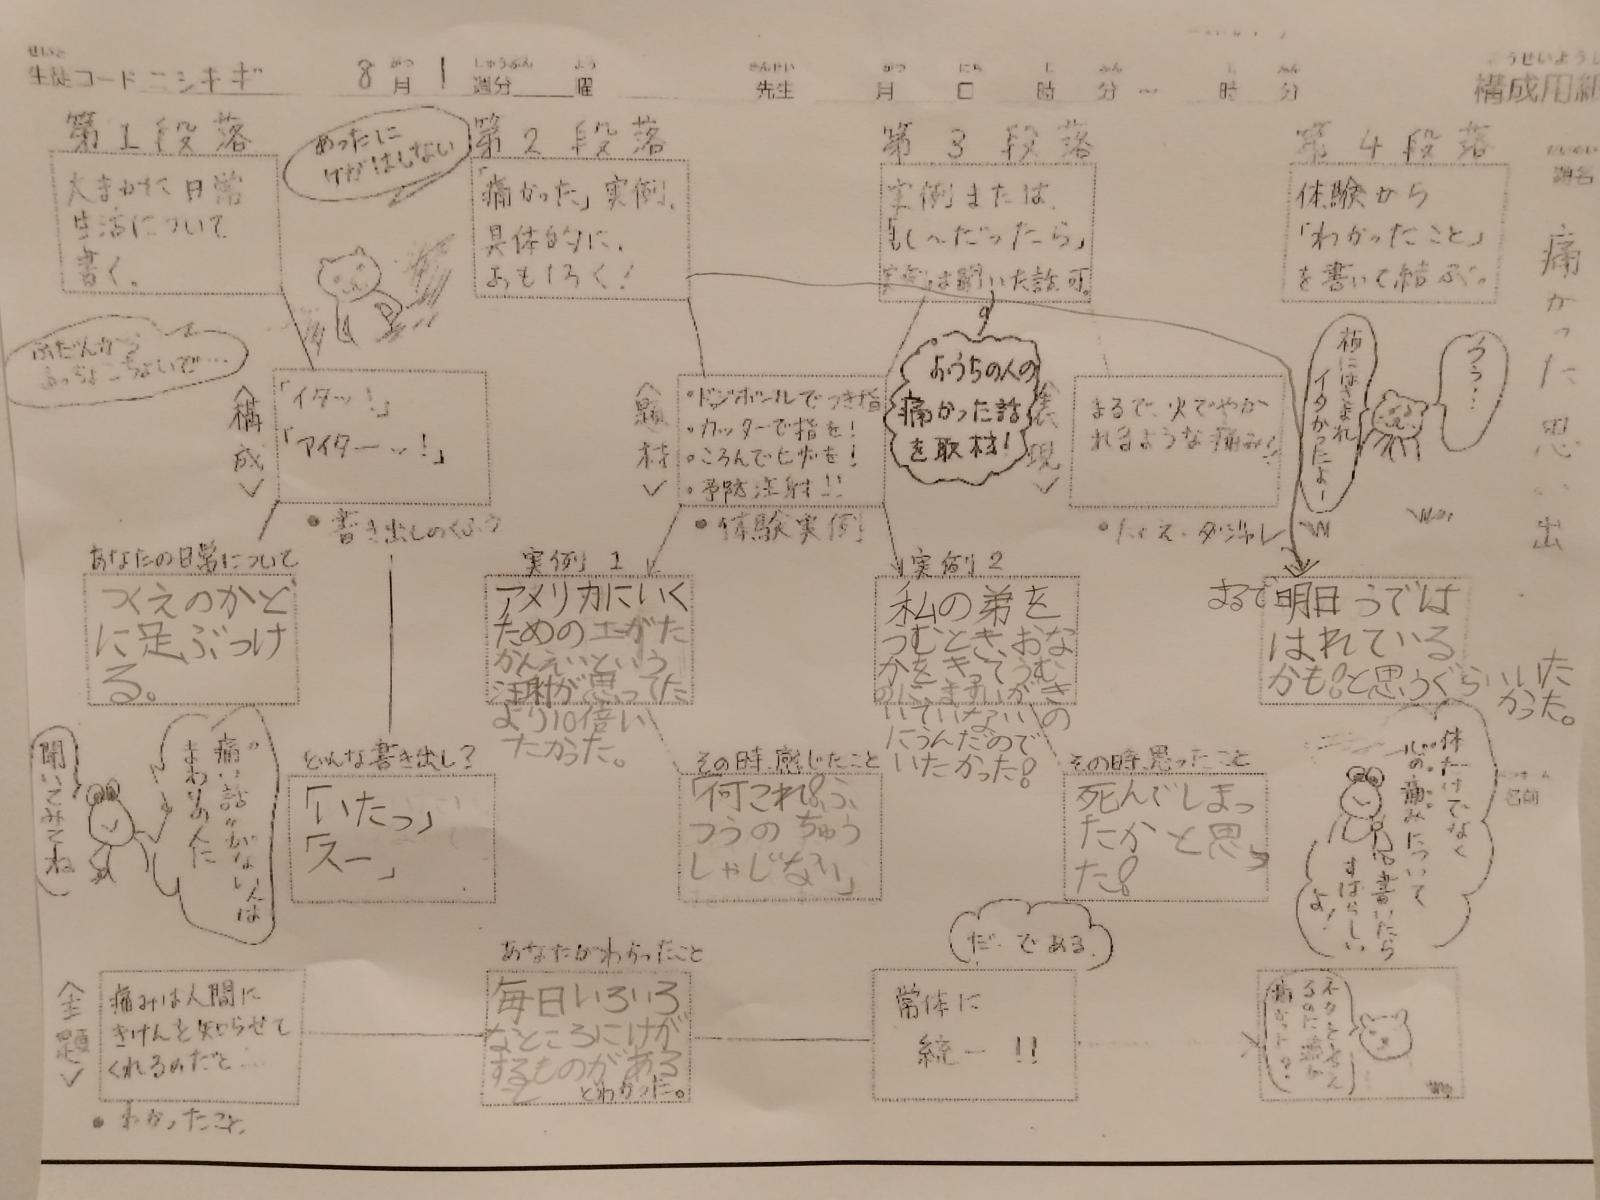 せいと
生徒コード ニシキギ 8月 1週分 曜 先生 月 日 時 分 ～ 時 分
がつ しゅうぶん よう せんせい がつ にち じ ふん じ ふん
構成用紙
痛かった思い出
名前
第1段落
大まかに日常
生活について
書く。
めったに
けがはしない
第2段落
「痛かった」実例、
具体的に、
おもしろく！
第3段落
実例または、
「もし〜だったら」
実例は聞いた話可。
第4段落
体験から
「わかったこと」
を書いて結ぶ。
ふだんから
おっちょこちょいで…
〈構成〉
「イタッ！」
「アイターッ！」
●書き出しのくふう
〈題材〉
・ドッジボールでつき指
・カッターで指を！
・ころんでヒザを！
・予防注射！！
●体験実例
おうちの人の
痛かった話
を取材！
〈表現〉
まるで、火でやか
れるような痛み！
●たとえ・ダジャレ
イタかったよー
ううう…
あなたの日常について
つくえのかど
に足ぶつけ
る。
実例1
アメリカにいく
ための
かんえんという
注射が思ってた
より10倍い
たかった。
実例2
私の弟を
うむとき、おな
かをきってうむ
のに、ますいがき
いていないの
にうんだので
いたかった！
まるで明日うでは
はれている
かも！と思うぐらいいた
かった。
聞いてみてね
〝痛い話〟がない人は
まわりの人に
どんな書き出し？
「いたっ」
「スー」
その時、感じたこと
「何これ！ふ
つうのちゅう
しゃじない」
その時、思ったこと
死んでしまっ
たかと思っ
た！
体だけでなく
心の痛みについて
書いたら
すばらしい
よ！
〈主題〉
痛みは人間に
きけんを知らせて
くれるのだと…
●わかったこと
あなたがわかったこと
毎日いろいろ
なところにけが
するものがある
とわかった。
だ・である
常体に
統一！！